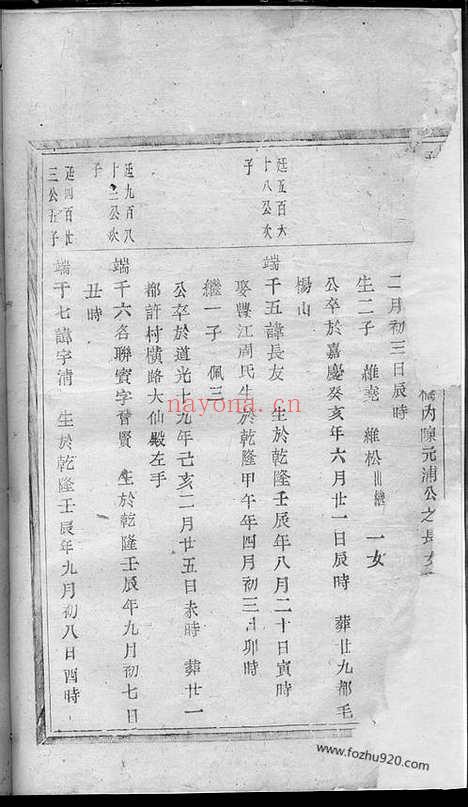 內陳元浦公之長女
二月初三日辰時
生二子 維堯 維松出繼 一女
公卒於嘉慶癸亥年六月廿一日辰時 葬廿九都毛
楊山
廷五百六
十八公次
子
端千五諱長友 生於乾隆壬辰年八月二十日寅時
娶豐江周氏生於乾隆甲午年四月初三日卯時
繼一子 佩三
公卒於道光十九年己亥二月廿五日未時 葬廿一
都許村橫路大仙殿左手
廷九百八
十二公次
子
端千六名聯賓字晉賢 生於乾隆壬辰年九月初七日
丑時
廷四百廿
三公五子
端千七諱字清 生於乾隆壬辰年九月初八日酉時
nayona.cn
www.fozhu920.com